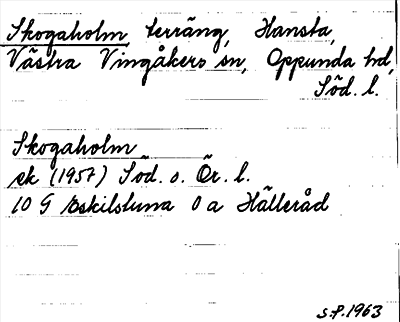 Skogaholm, terräng, Hansta,
Västra Vingåkers sn, Oppunda hd,
Söd. l.
Skogaholm
ek (1957) Söd. o. Ör. l.
10 G Eskilstuna 0 a Hälleråd
S.P. 1963